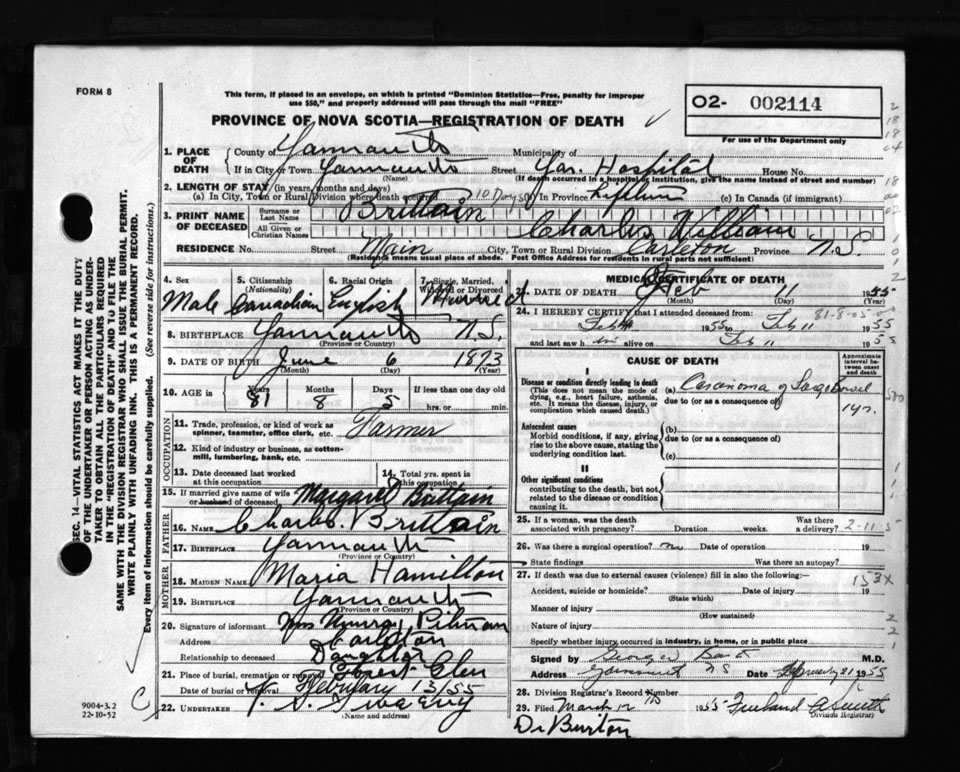 FORM 8
This form, if placed in an envelope, on which is printed "Dominion Statistics—Free, penalty for improper
use $50," and properly addressed will pass through the mail "FREE"
O2- 002114
PROVINCE OF NOVA SCOTIA—REGISTRATION OF DEATH
For use of the Department only
1. PLACE OF DEATH
County of Yarmouth Municipality of
If in City or Town Yarmouth Street Yar. Hospital House No.
(Name) (If death occurred in a hospital or institution, give the name instead of street and number)
2. LENGTH OF STAY (in years, months and days)
(a) In City, Town or Rural Division where death occurred 10 Days (b) In Province Lifetime (c) In Canada (if immigrant)
3. PRINT NAME OF DECEASED
Surname or Last Name Brittain
All Given or Christian Names Charles William
RESIDENCE No. Street Main City, Town or Rural Division Carleton Province N.S.
(Residence means usual place of abode. Post Office Address for residents in rural parts not sufficient)
4. Sex Male
5. Citizenship (Nationality) Canadian
6. Racial Origin English
7. Single, Married, Widowed or Divorced Married
8. BIRTHPLACE Yarmouth N.S.
(Province or Country)
9. DATE OF BIRTH June 6 1873
(Month) (Day) (Year)
10. AGE in Years 81 Months 8 Days 5 If less than one day old
hrs. or min.
OCCUPATION
11. Trade, profession, or kind of work as
spinner, teamster, office clerk, etc. Farmer
12. Kind of industry or business, as cotton-
mill, lumbering, bank, etc.
13. Date deceased last worked
at this occupation
14. Total yrs. spent in
this occupation
15. If married give name of wife
or husband of deceased Margaret Brittain
FATHER
16. NAME Charles Brittain
17. BIRTHPLACE Yarmouth
(Province or Country)
MOTHER
18. MAIDEN NAME Maria Hamilton
19. BIRTHPLACE Yarmouth
(Province or Country)
20. Signature of informant Mrs Murray Pitman
Address Carleton
Relationship to deceased Daughter
21. Place of burial, cremation or removal Forest Glen
Date of burial or removal February 13/55
22. UNDERTAKER
(Name and address)
MEDICAL CERTIFICATE OF DEATH
23. DATE OF DEATH Feb 11 1955
(Month) (Day) (Year)
24. I HEREBY CERTIFY that I attended deceased from: 81-8-05-05
Feb 1955 to Feb 11 1955
and last saw him alive on Feb 11 1955
CAUSE OF DEATH
Approximate interval between onset and death
I
Disease or condition directly leading to death
(This does not mean the mode of
dying, e.g., heart failure, asthenia,
etc. It means the disease, injury, or
complication which caused death.)
(a) Carcinoma of Large bowel
due to (or as a consequence of)
1 yr.
Antecedent causes
Morbid conditions, if any, giving
rise to the above cause, stating the
underlying condition last.
(b)
due to (or as a consequence of)
(c)
II
Other significant conditions
contributing to the death, but not
related to the disease or condition
causing it.
25. If a woman, was the death
associated with pregnancy? Duration weeks. Was there
a delivery? 2-11-5
26. Was there a surgical operation? no Date of operation 19
State findings Was there an autopsy?
27. If death was due to external causes (violence) fill in also the following:—
153X
Accident, suicide or homicide? Date of injury 19
(State which)
Manner of injury
(How sustained)
Nature of injury
Specify whether injury occurred in industry, in home, or in public place
Signed by M.D.
Address Yarmouth NS Date February 21 1955
28. Division Registrar's Record Number
29. Filed March 12 th 1955
Division Registrar)
Dr Burton
SEC. 14—VITAL STATISTICS ACT MAKES IT THE DUTY
OF THE UNDERTAKER OR PERSON ACTING AS UNDER-
TAKER TO OBTAIN ALL THE PARTICULARS REQUIRED
IN THE "REGISTRATION OF DEATH" AND TO FILE THE
SAME WITH THE DIVISION REGISTRAR WHO SHALL ISSUE THE BURIAL PERMIT.
WRITE PLAINLY WITH UNFADING INK. THIS IS A PERMANENT RECORD.
Every item of information should be carefully supplied. (See reverse side for instructions.)
9004-3.2
22-10-52